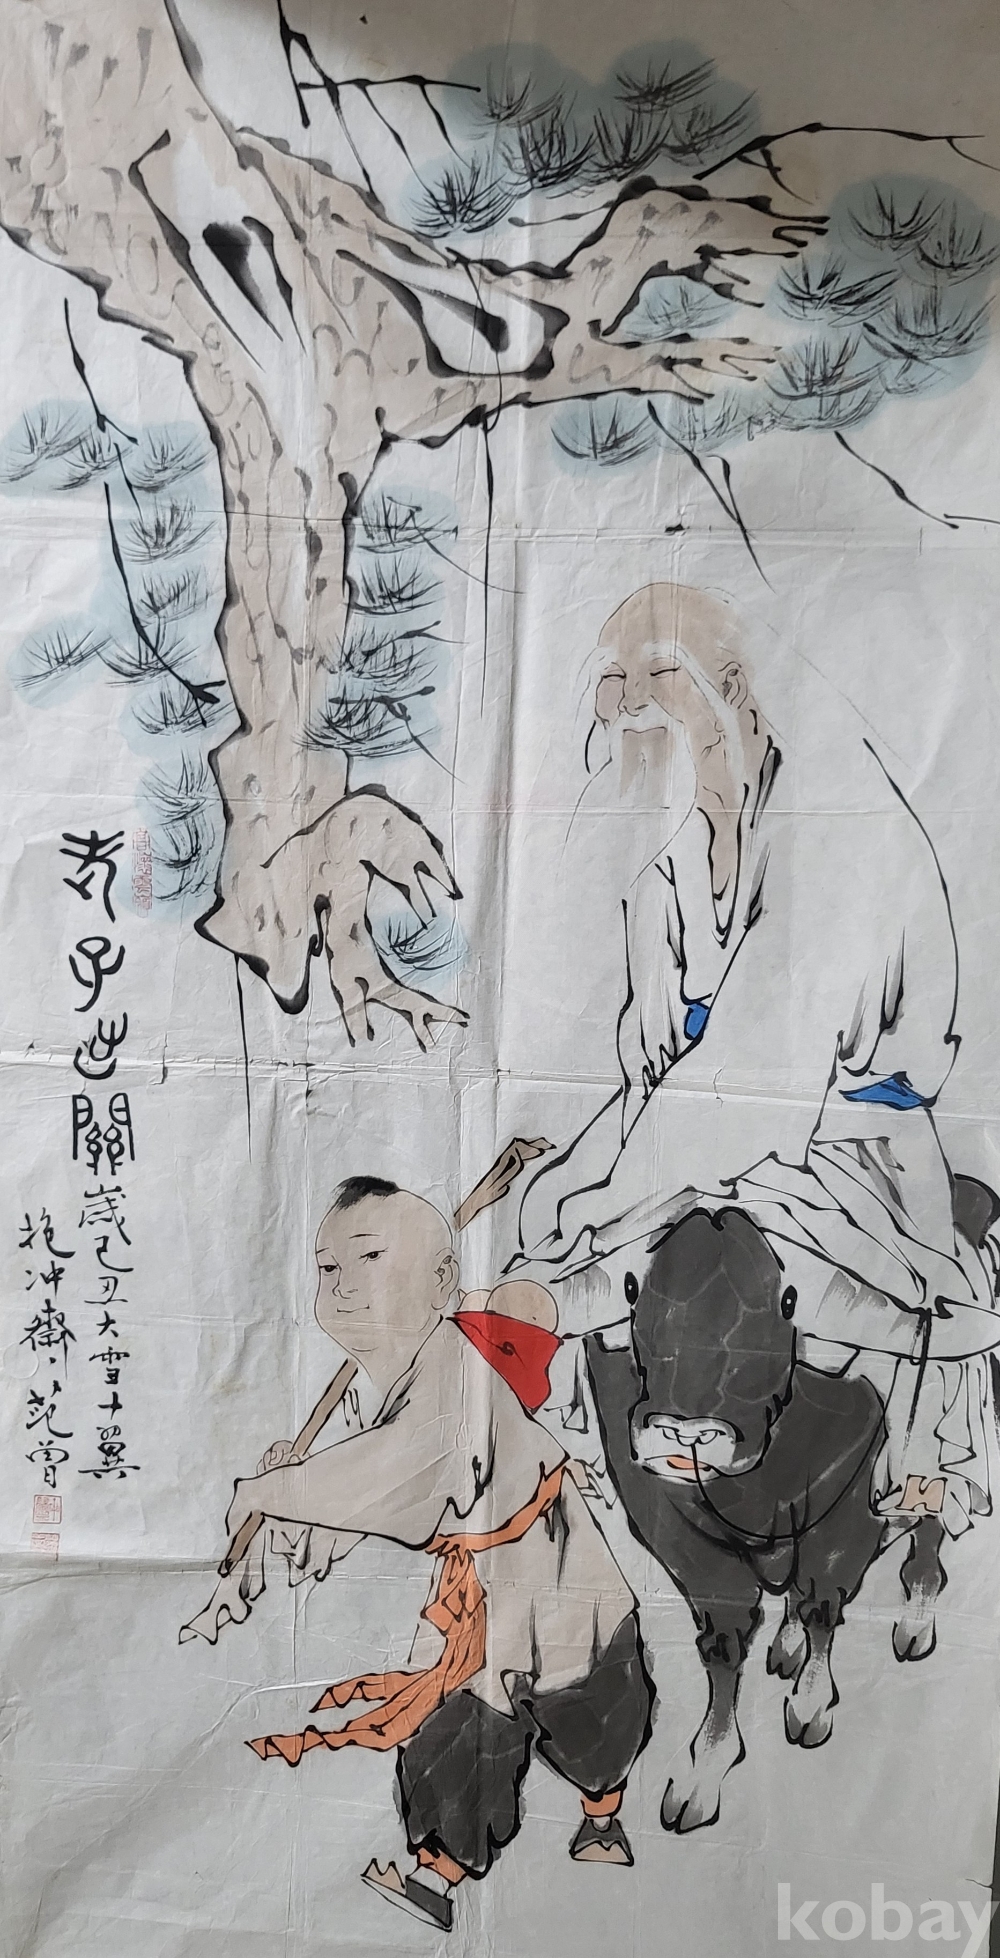 老子出關
歲己丑大雪十翼
抱冲齋范曾
kobay